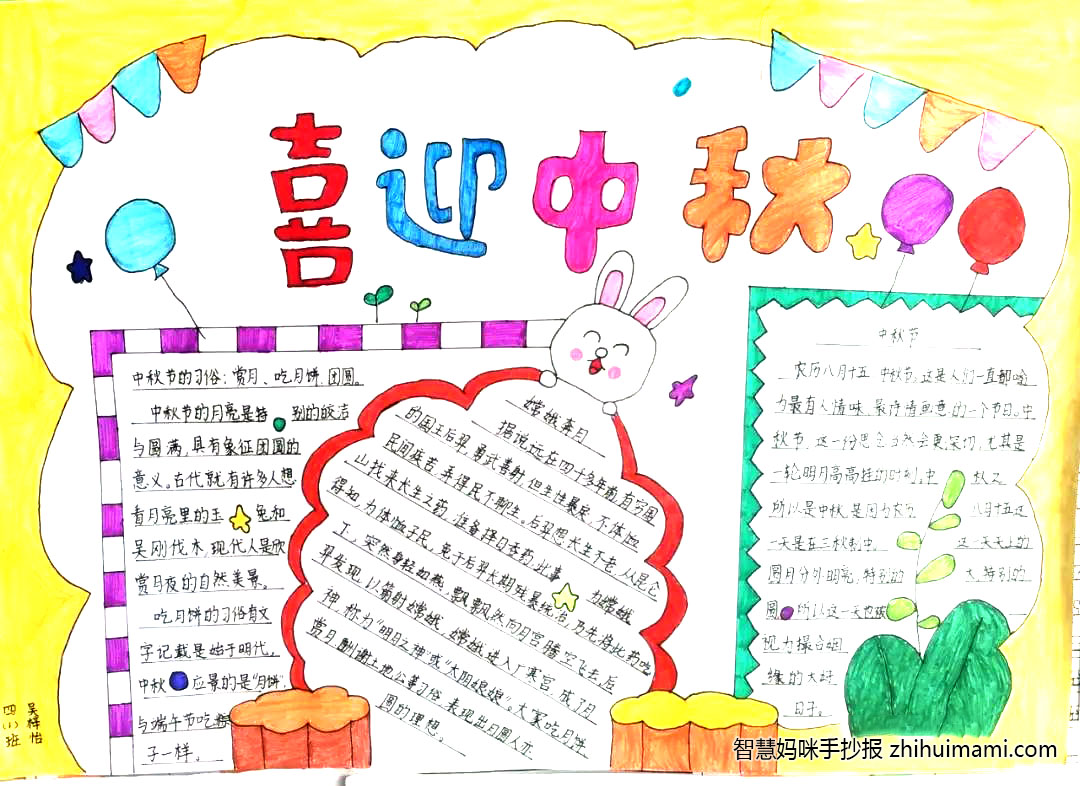 喜迎中秋
中秋节的习俗：赏月、吃月饼、团圆。
中秋节的月亮是特别的皎洁
与圆满，具有象征团圆的
意义。古代就有许多人想
看月亮里的玉兔和
吴刚伐木，现代人是欣
赏月夜的自然美景。
吃月饼的习俗有文
字记载是始于明代，
中秋应景的是“月饼”
与端午节吃粽
子一样。
嫦娥奔月
据说远在四十多年前，有穷国
的国王后羿，勇武善射，但生性暴戾，不体恤
民间疾苦，弄得民不聊生。后羿想长生不老，从昆仑
山找来长生之药，准备择日季药，此事为嫦娥
得知，为体恤子民，免于后羿长期残暴统治，乃先将此药吃
下，突然身轻如燕，飘飘然向月宫腾空飞去，后
羿发现，以箭射嫦娥，嫦娥进入广寒宫，成了月
神，称为“明月之神”或“太阴娘娘”。大家吃月饼
赏月酬谢土地公等习俗，表现出月圆人亦
圆的理想。
中秋节
农历八月十五 中秋节，这是人们一直都喻
为最有人情味、最诗情画意的一个节日。中
秋节，这一份思念当然会更深切，尤其是
一轮明月高高挂的时刻。中秋之
所以是中秋，是因为农历八月十五这
一天是在三秋制中。这一天天上的
圆月分外明亮，特别的大，特别的
圆，所以这一天也被
视为撮合姻
缘的大好
日子。
四(1)班
吴梓怡
智慧妈咪手抄报 zhihuimami.com